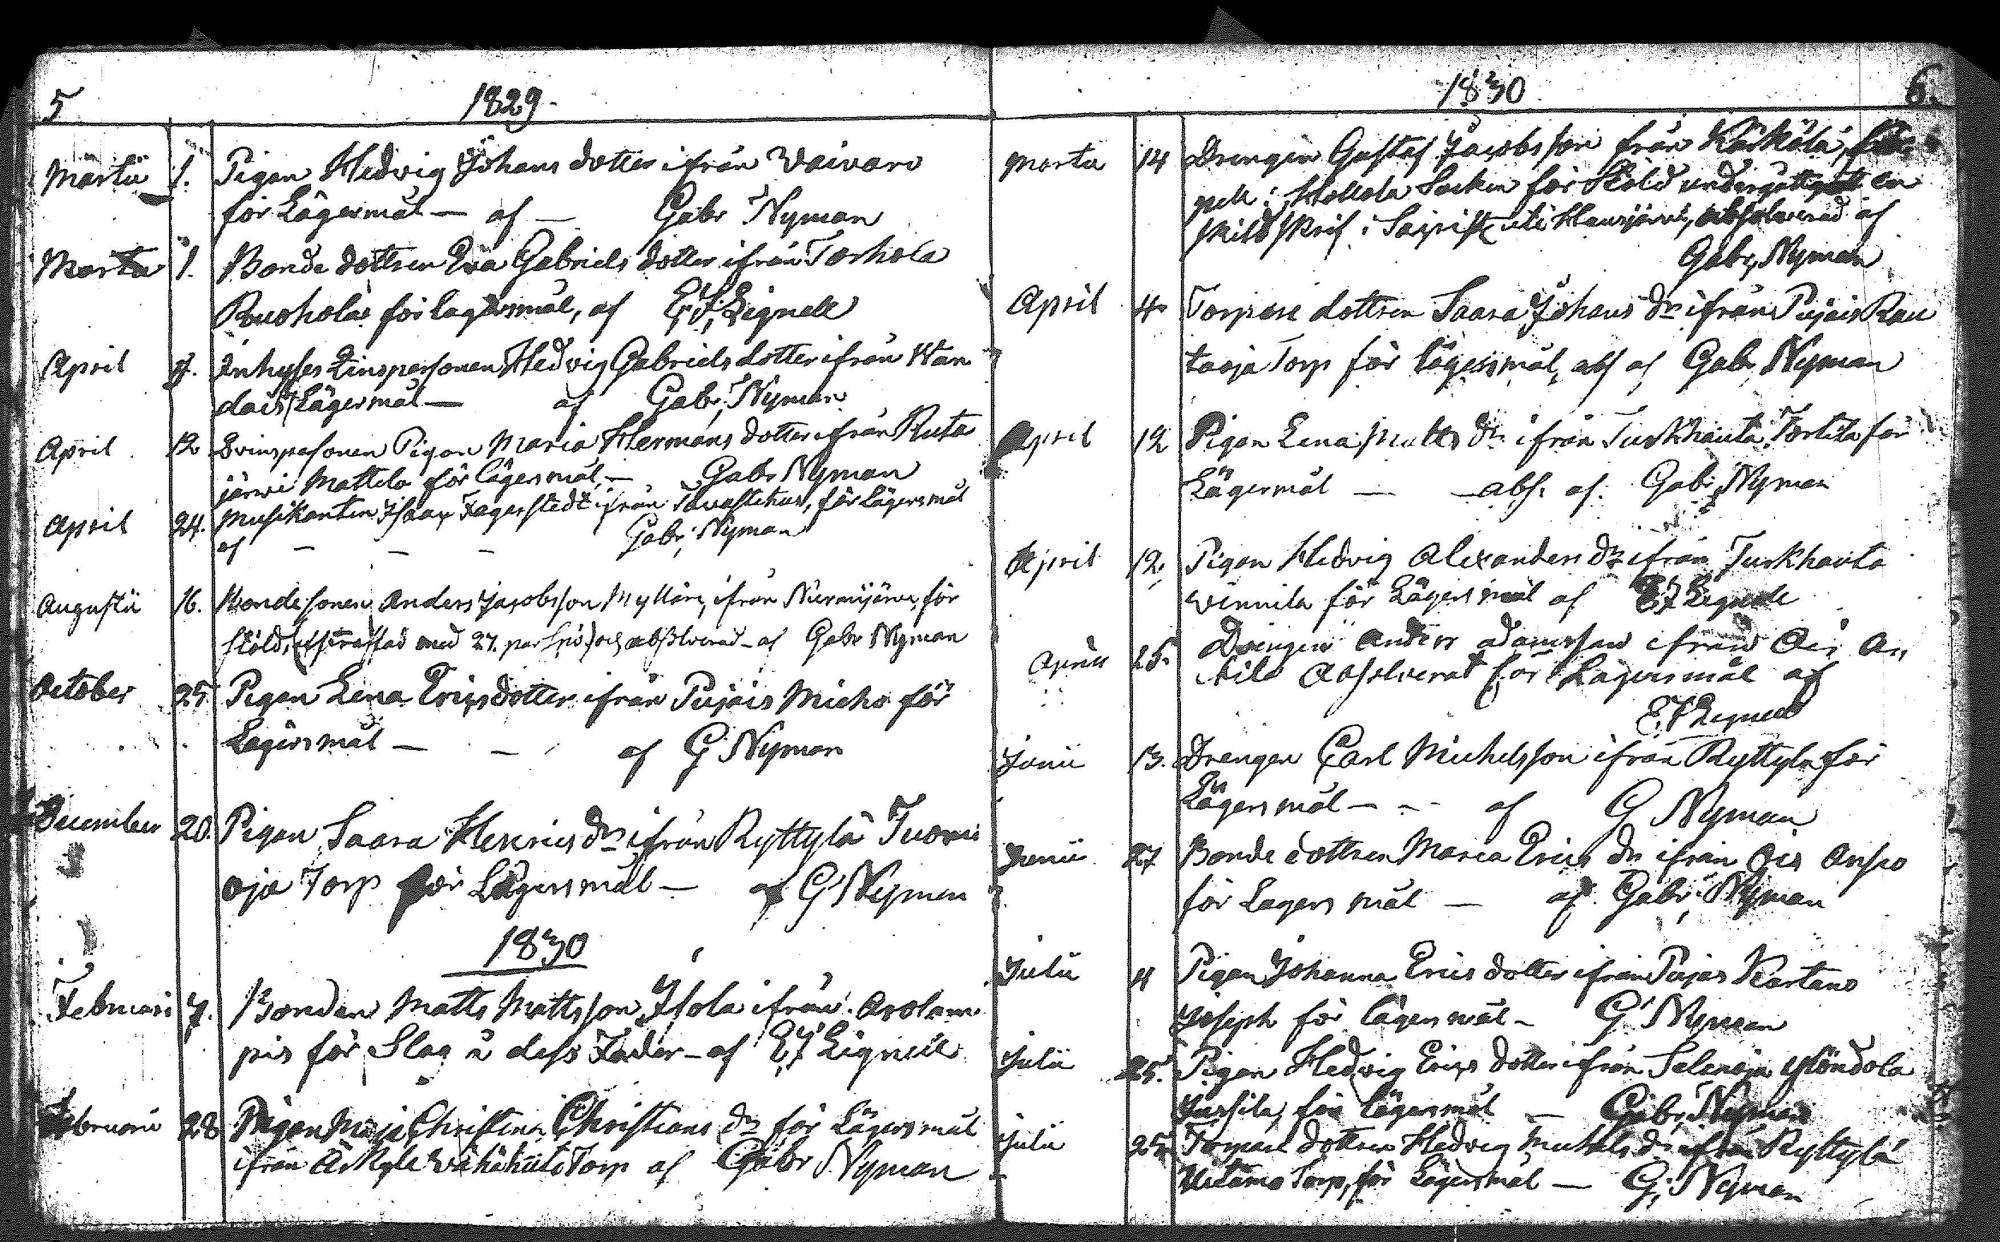 5
1829.
Martii 1. Pigan Hedvig Johans dotter ifrån Vaivaro
för Lägersmål — af — Gabr Nyman
Martii 1. Bonde dottren Eva Gabriels dotter ifrån Torhola
för lägersmål, af E.J. Lignell
April Inhyses Qinspersonen Hedvig Gabriels dotter ifrån Han
dais Lägermål — af Gabr. Nyman
April 12 Pigan Maria Hermans dotter ifrån Ruta
järwi Mattila för lägersmål — Gabr Nyman
April 24. Musikanten Isaac Fagerstedt ifrån Tavastehus, för Lägersmål
af — — — Gabr. Nyman
Augustii 16. Bondesonen Anders Jacobsson Mylläri, ifrån Nurmijärvi, för
Stöld, med 27. par Spö och absolverad — af Gabr Nyman
October 25 Pigan Lena Ericsdotter ifrån Pujais Micho för
Lägersmål — — af G. Nyman
December 20. Pigan Saara Henrics dr ifrån Ryttylä Tuomi
oja Torp för Lägersmål — af G. Nyman
1830
Februari 7. Bonden Matts Mattsson Isola ifrån Arolam
pis för Slag å dess Fader — af E J Lignell
Februari 28 Pigan Maja Christina Christians dr för Lägersmål
ifrån Torp af Gabr Nyman
1830
6.
Martii 14 Drengen Gustaf Jacobsson från Kärkölä
pell i Hollola Socken för Stöld undergått en
skild skrift i Sacristi uti Hausjärvi, absolverad af
Gabr. Nyman
April 4 Torpare dottren Saara Johans dr ifrån Pujais Rau
taoja Torp för lägersmål, abs af Gabr. Nyman
April 12 Pigan Lena Matts dr ifrån Turkhauta Tortila för
Lägermål — — abs. af. Gabr. Nyman
April 12. Pigan Hedvig Alexanders dr ifrån Turkhauta
Vennila för Lägersmål af E J Lignell
April 25. Drengen Anders Adamsson ifrån Ois An
tila Absolverat för Lägersmål af
E. J Lignell
Junii 13. Drengen Carl Michelsson ifrån Ryttylä för
Lägersmål — — af G Nyman
Junii 27 Bonde dottren Maria Erics dr ifrån Ois Anso
för Lagersmål — af Gabr. Nyman
Julii 4 Pigan Johanna Erics dotter ifrån Pujas Kartano
Joseph för lägersmål — G. Nyman
Julii 25. Pigan Hedvig Erics dotter ifrån Selenoja
Jussila, för lägersmål — Gabr. Nyman
Julii 25 Torpare dottren Hedvig Michels dr ifrån Ryttylä
Torp, för Lägersmål — G. Nyman